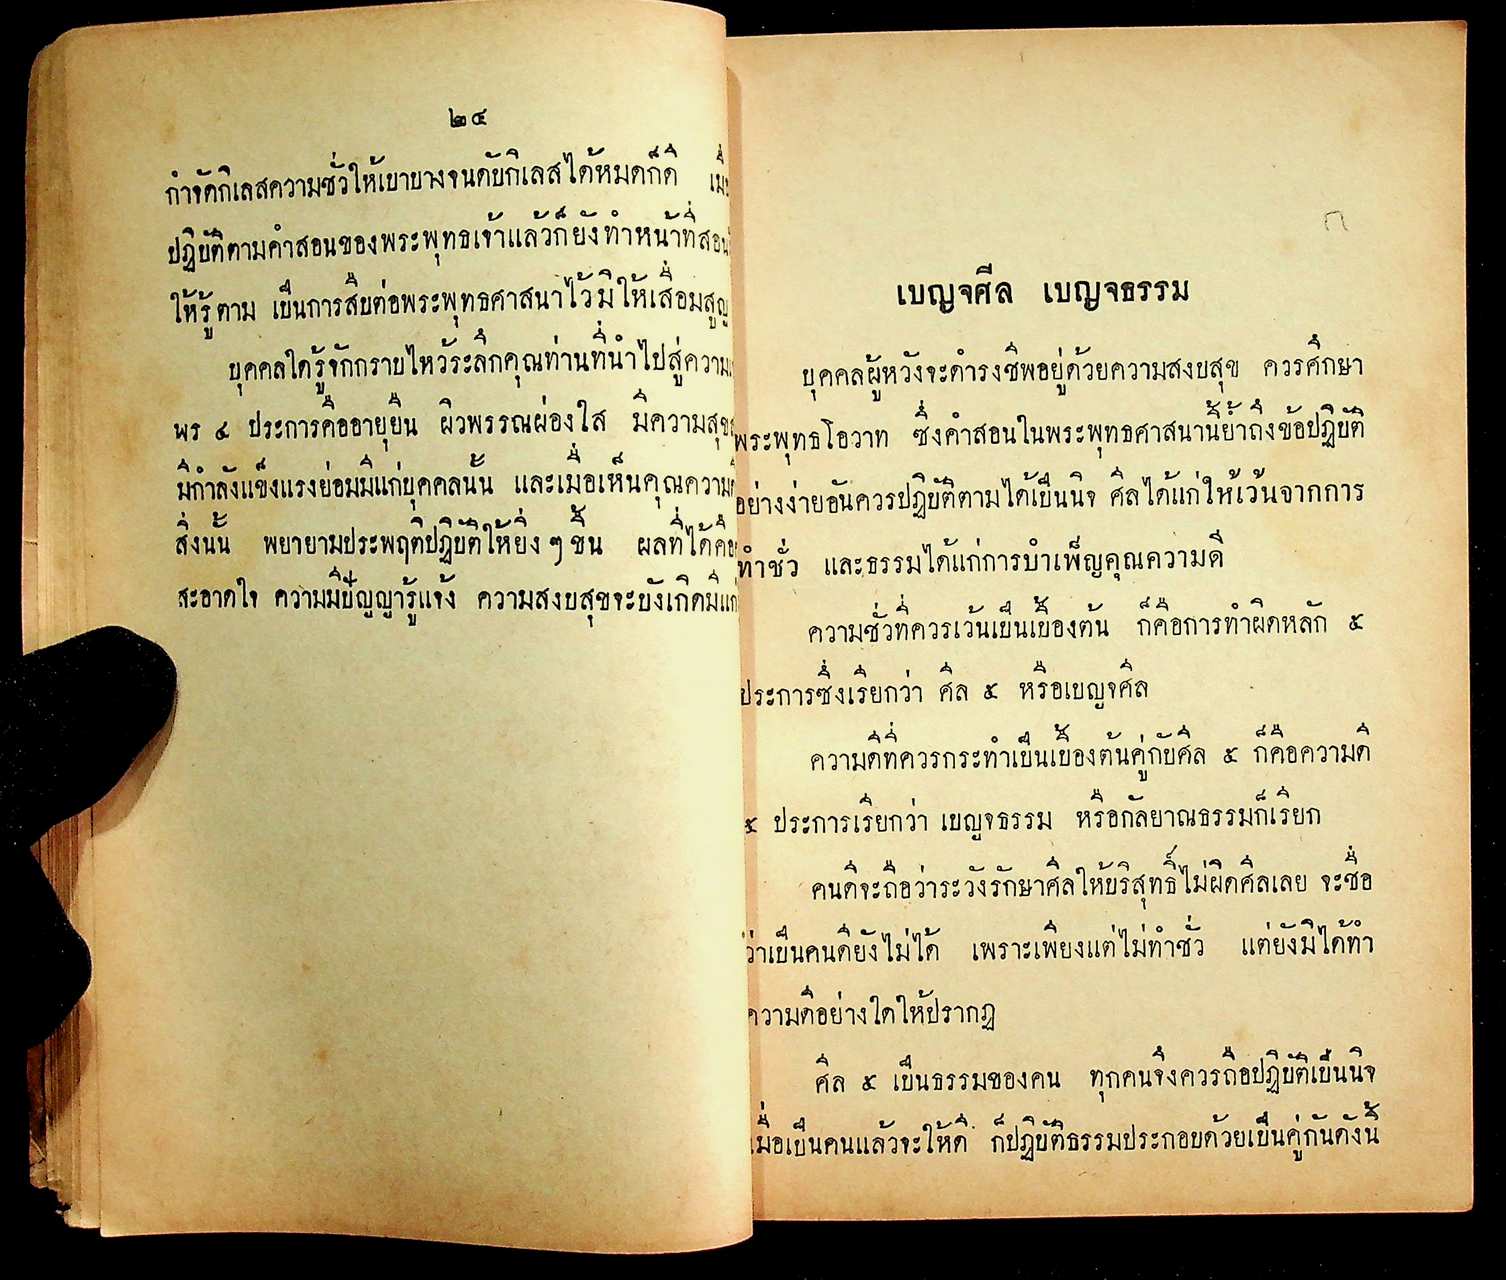 ๒๔
กำจัดกิเลสความชั่วให้เบาบางจนดับกิเลสได้หมดก็ดี
ปฏิบัติตามคำสอนของพระพุทธเจ้าแล้วก็ยังทำหน้าที่สอน
ให้รู้ตาม เป็นการสืบต่อพระพุทธศาสนาไว้มิให้เสื่อมสูญ
บุคคลใดรู้จักกราบไหว้ระลึกคุณท่านที่นำไปสู่ความ
พร ๔ ประการคืออายุยืน ผิวพรรณผ่องใส มีความสุข
มีกำลังแข็งแรงย่อมมีแก่บุคคลนั้น และเมื่อเห็นคุณความ
สิ่งนั้น พยายามประพฤติปฏิบัติให้ยิ่ง ๆ ขึ้น ผลที่ได้คือ
สะอาดใจ ความมีปัญญารู้แจ้ง ความสงบสุขจะบังเกิดมีแก่
เบญจศีล เบญจธรรม
บุคคลผู้หวังจะดำรงชีพอยู่ด้วยความสงบสุข ควรศึกษา
พระพุทธโอวาท ซึ่งคำสอนในพระพุทธศาสนานี้ย้ำถึงข้อปฏิบัติ
อย่างง่ายอันควรปฏิบัติตามได้เป็นนิจ ศีลได้แก่ให้เว้นจากการ
ทำชั่ว และธรรมได้แก่การบำเพ็ญคุณความดี
ความชั่วที่ควรเว้นเป็นเบื้องต้น ก็คือการทำผิดหลัก ๕
ประการซึ่งเรียกว่า ศีล ๕ หรือเบญจศีล
ความดีที่ควรกระทำเป็นเบื้องต้นคู่กับศีล ๕ ก็คือความดี
๕ ประการเรียกว่า เบญจธรรม หรือกัลยาณธรรมก็เรียก
คนดีจะถือว่าระวังรักษาศีลให้บริสุทธิ์ไม่ผิดศีลเลย จะชื่อ
ว่าเป็นคนดียังไม่ได้ เพราะเพียงแต่ไม่ทำชั่ว แต่ยังมิได้ทำ
ความดีอย่างใดให้ปรากฏ
ศีล ๕ เป็นธรรมของคน ทุกคนจึงควรถือปฏิบัติเป็นนิจ
เมื่อเป็นคนแล้วจะให้ดี ก็ปฏิบัติธรรมประกอบด้วยเป็นคู่กันดังนี้